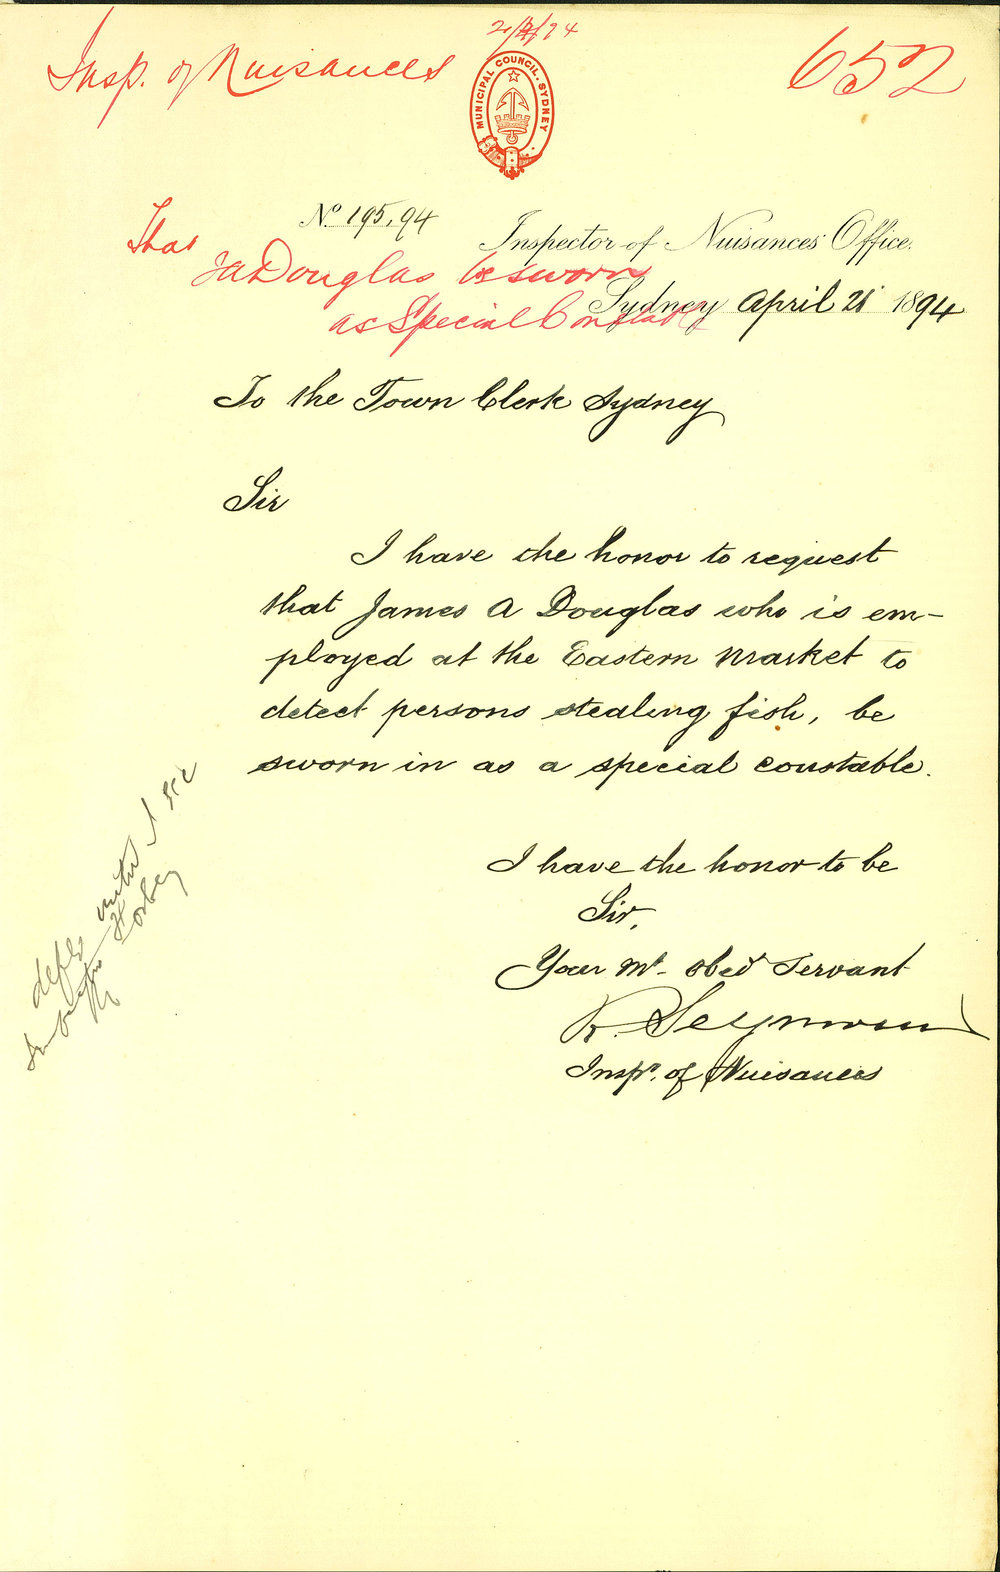 Insp. of Nuisances
652
MUNICIPAL COUNCIL. SYDNEY
No 195,94
Inspector of Nuisances' Office.
That
JA Douglas be sworn
as Special Constable
Sydney April 21 1894
To the Town Clerk Sydney
Sir
I have the honor to request
that James A Douglas who is em-
ployed at the Eastern Market to
detect persons stealing fish, be
sworn in as a special constable.
I have the honor to be
Sir,
Your Mt. Obed Servant
R. Seymour
Inspr. of Nuisances
until I see